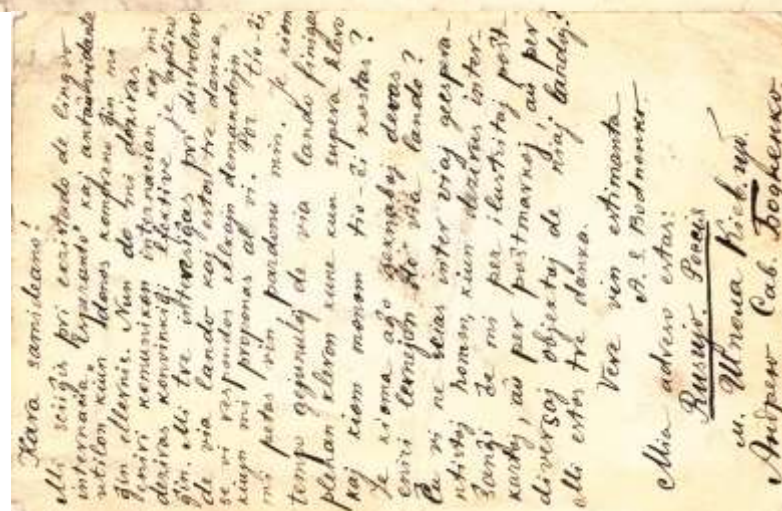 Kara samideano!
Mi sciiĝis pri ekzistado de lingvo
internacia "Esperanto" kaj antaŭvidante
utilon kiun donos kompreno ĝin mi
ĝin ellernis. Nun do mi deziras
eniri komunikon internacian kaj mi
deziras konvinkiĝi efektive je
ĝin. Mi tre interesiĝas pri disvolvo
de via lando kaj estos tre danka,
se vi respondos kelkajn demandojn
kiujn mi proponas al vi. Por tio-ĉi
mi petas vin pardonu min. Je kiom
tempo gejunuloj de via lando finigas
plenan kleron kune kun supera klero
kaj kiom monon tio-ĉi kostas?
Je kioma aĝo geknaboj devas
eniri lernejon en via lando?
Ĉu vi ne scias inter viaj geespera-
ntistoj homon, kiun deziras inter-
ŝanĝi je mi per ilustritaj poŝt
kartoj, aŭ per poŝtmarkoj aŭ per
diversaj objektoj de niaj landoj?
Mi estos tre danka.
Vere vin estimanta
A. S. Bodnenko.
Mia adreso estas:
Rusujo. Россія
м. Шпола Кіев. губ.
Андрею Сав. Бодненко